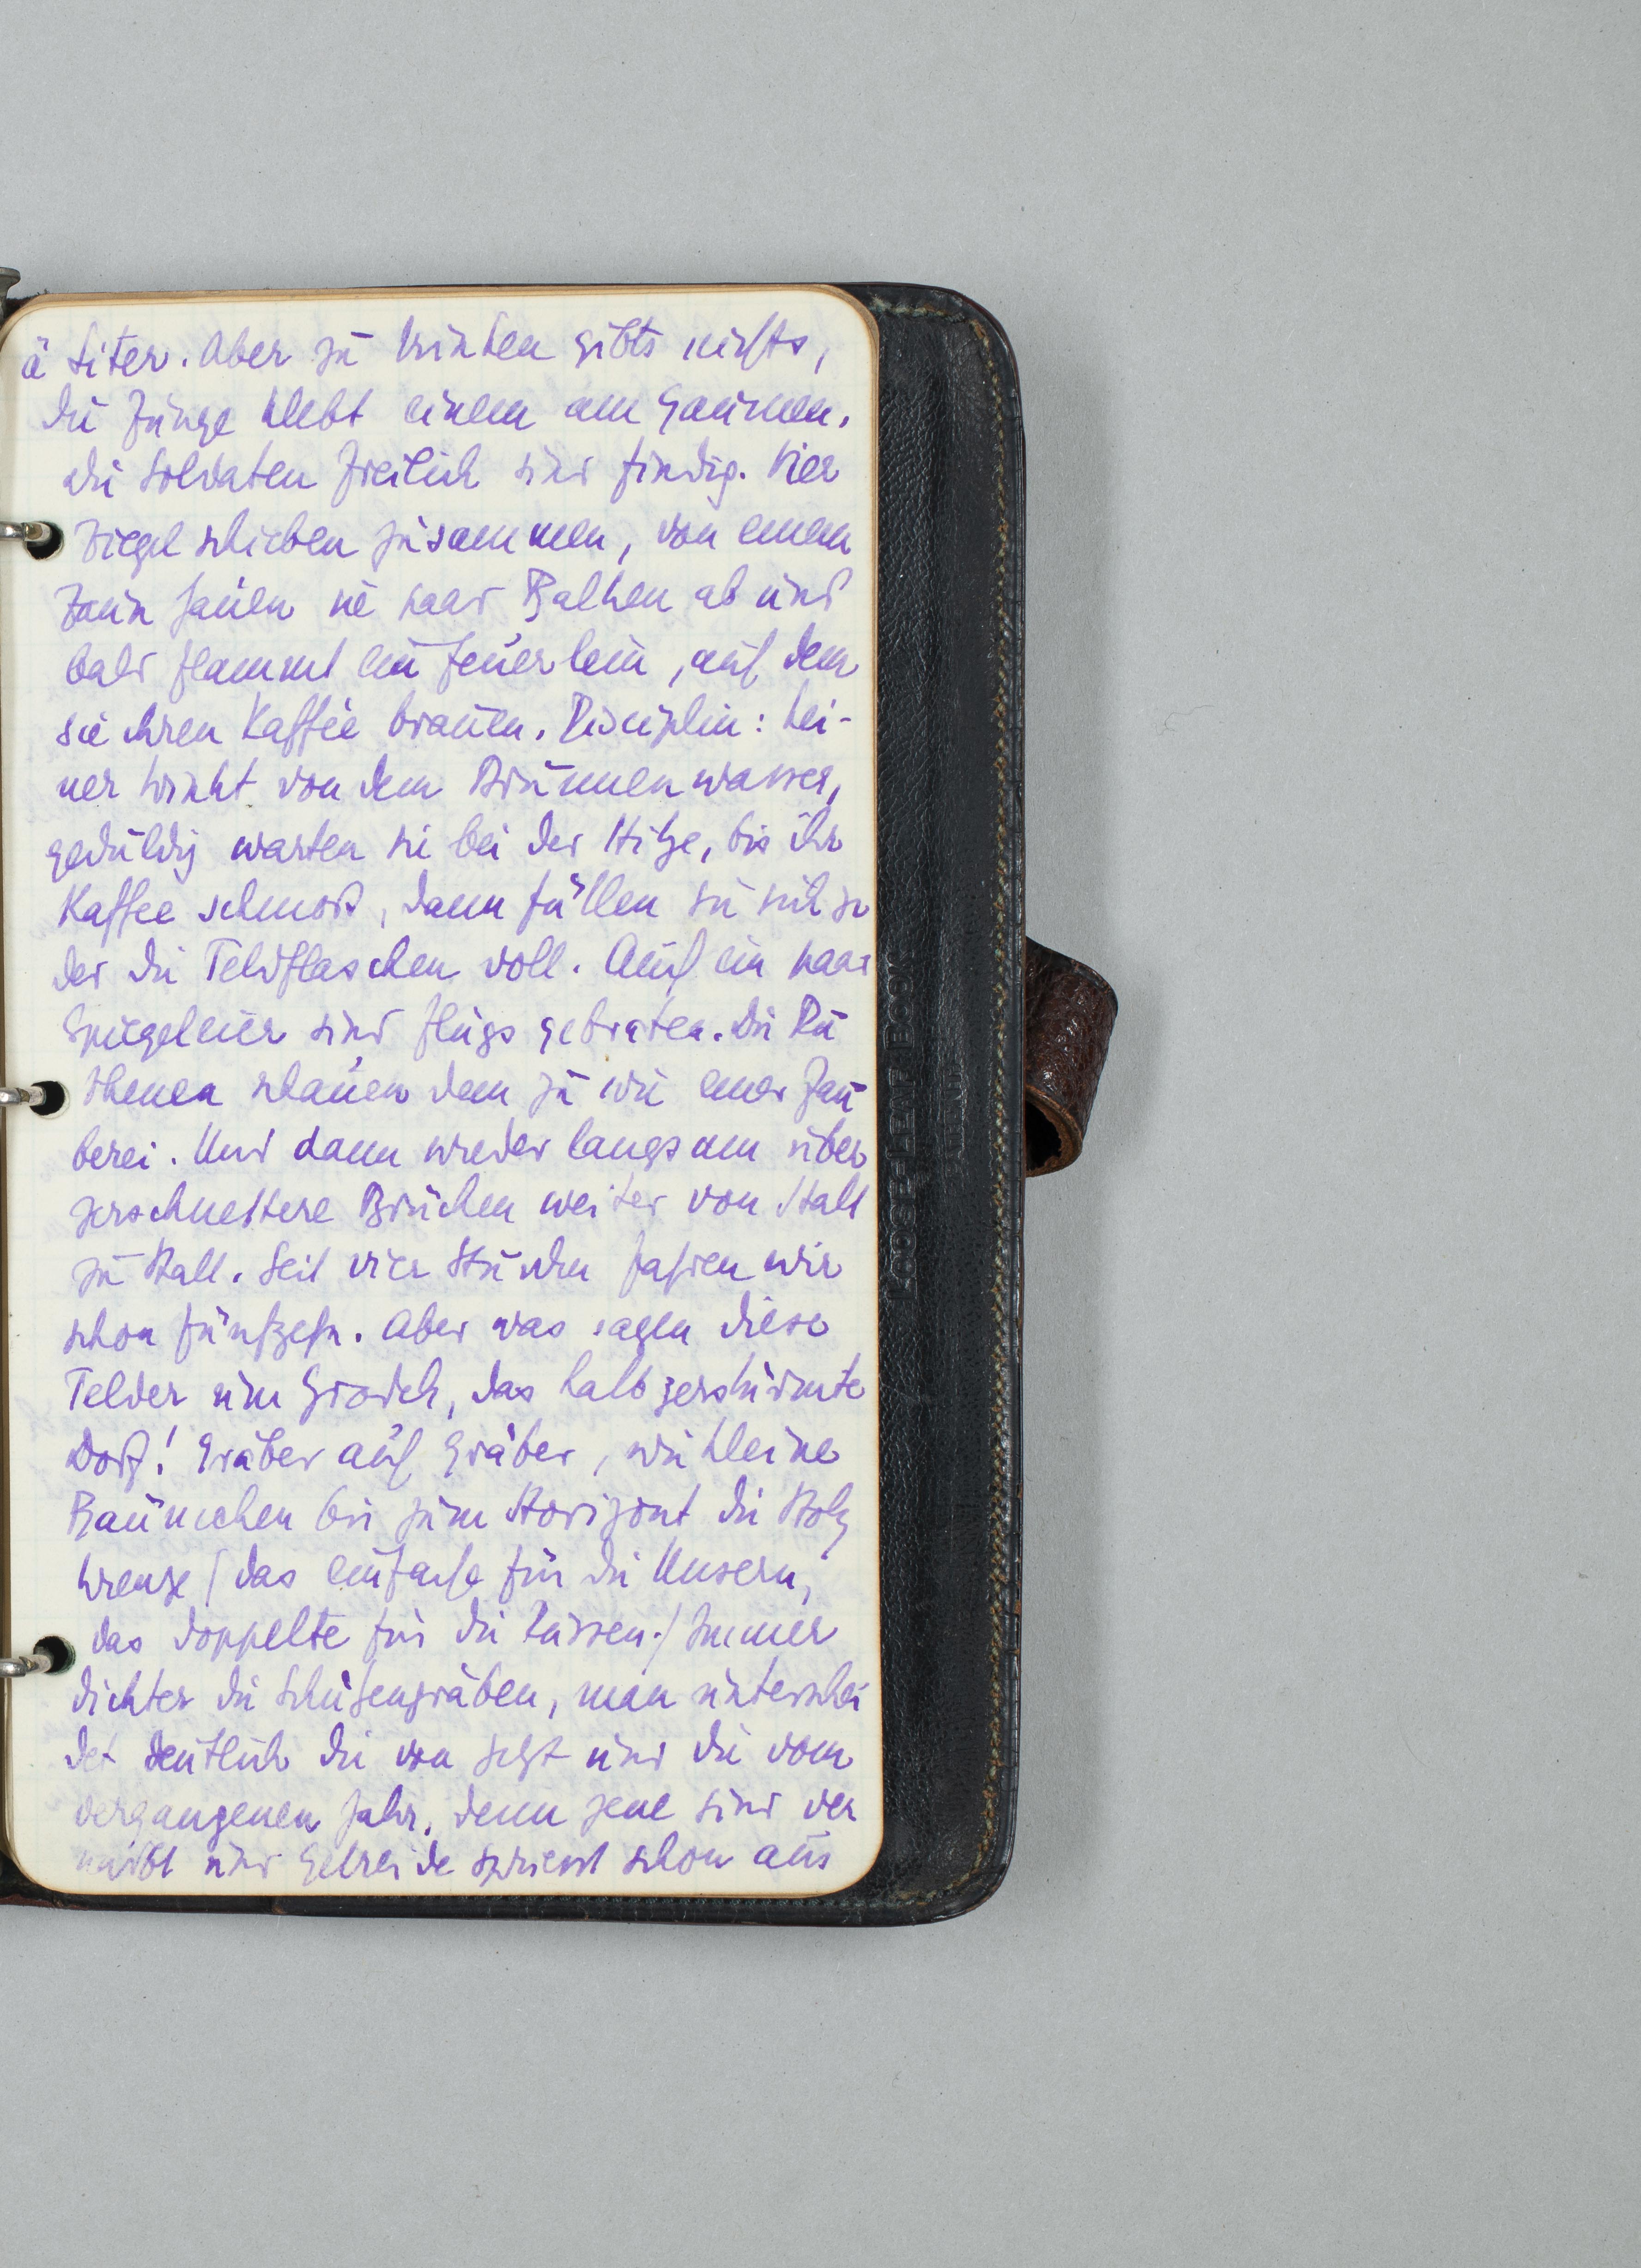 à Liter. Aber zu trinken gibts nichts,
die Zunge klebt einem am Gaumen.
Die Soldaten freilich sind findig. Vier
Ziegel schieben zusammen, von einem
Zaun hauen sie paar Balken ab und
bald flammt ein Feuerlein, auf dem
sie ihren Kaffee brauen. Disciplin: kei-
ner trinkt von dem Brunnenwasser,
geduldig warten sie bei der Hitze, bis ihr
Kaffee schmort, dann füllen sie sich
der die Feldflaschen voll. Auch ein paar
Spiegeleier sind flugs gebraten. Die Ru
thenen schauen dem zu wie einer Zau
berei. Und dann wieder langsam über
zerschmetterte Brücken weiter von Halt
zu Halt. Seit vier Stunden fahren wir
schon fünfzehn. Aber was sagen diese
Felder um Grodek, das halb zerstürmte
Dorf! Gräber auf Gräber, wie kleine
Bäumchen bis zum Horizont die Holz
kreuze (das einfache für die Unsern,
das doppelte für die Russen.) Immer
dichter die Schützengräben, man unterschei
det deutlich die von jetzt und die vom
vergangenen Jahr, denn jene sind ver
mürbt und Getreide spriesst schon aus
LOOSE-LEAF BOOK